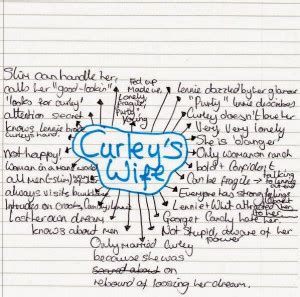 Slim can handle her,
calls her "good-lookin"
"looks for curley"
attention secret
knows Lennie broke
curleys hand.
not happy!
Woman in a mans world
all men (-slim)
always visits bunkhouse
Intruded on Crooks, Candy, Lennie
Lost her own dream
knows about men
Fed up
Made up,
Lonely
Fragile,
"Purty"
Young
Curley's
Wife
Lennie dazzled by her glamour
"Purty" Lennie describes
Curley doesn't love her
Very, Very lonely
She is danger
Only woman on ranch
bold + confident
Can be fragile - talking
to Lennie
at end
Everyone has strong feelings
about
to her
Lennie + Whit attracted
George + Candy hate her
Not stupid, aware of her
power
Only married Curley
because she was
rebound of loosing her dream.